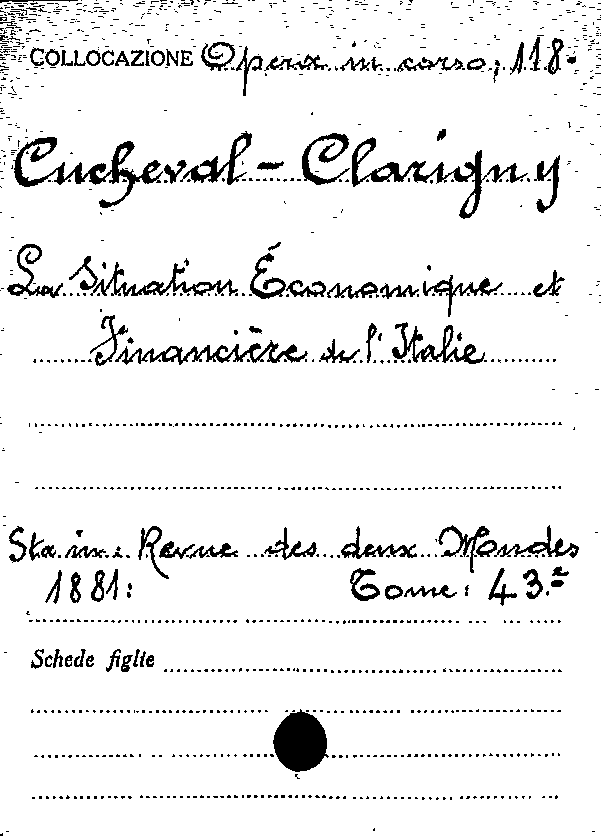 COLLOCAZIONE Opera in corso, 118.
Cucheval - Clarigny
La Situation Économique et
Financière de l'Italie
Sta in: Revue des deux Mondes
1881: Tome: 43.e
Schede figlie